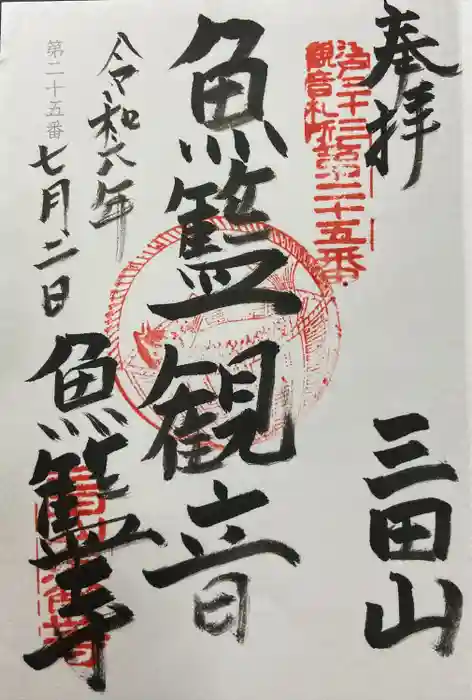 奉拝
三田山
江戸三十三
観音札所第二十五番
魚籃観音
令和六年
七月二日
第二十五番
魚籃寺